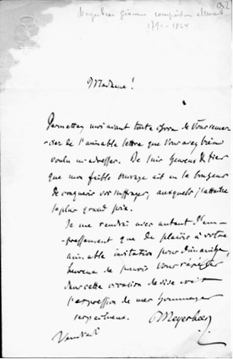 Madame!
Permettez moi avant toute chose de vous remer-
cier de l'aimable lettre que vous avez bien
voulu m'adresser. Je suis heureux & fier
que mon faible ouvrage ait eu le bonheur
de conquérir vos suffrages, auxquels j'attache
le plus grand prix.
Je me rendrai avec autant d'em-
pressement que de plaisir à votre
aimable invitation pour dimanche,
heureux de pouvoir vous
dans cette occasion de vive voix
l'expression de mes hommages
respectueux. Meyerbeer
Vendredi